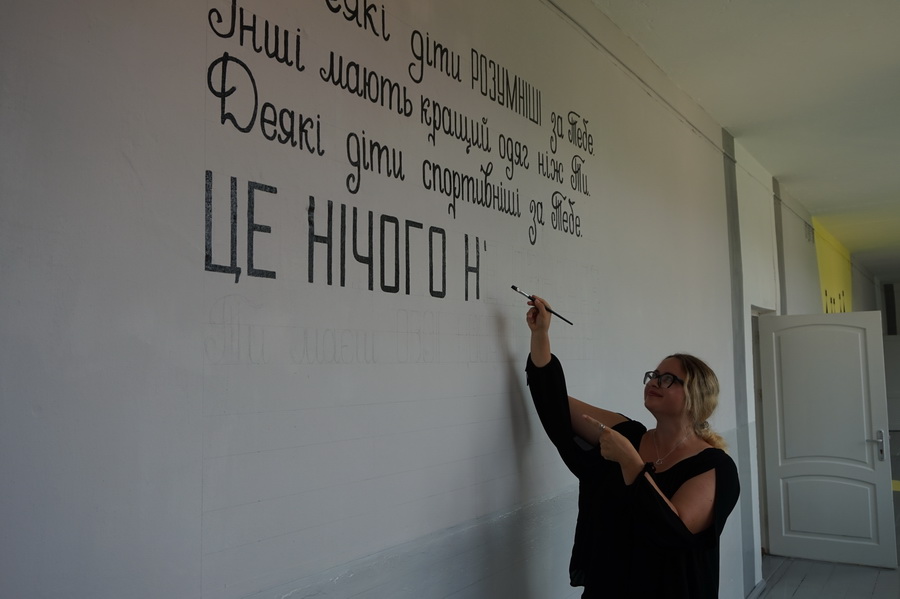 еякі діти РОЗУМНІШІ за Тебе.
Інші мають кращий одяг ніж Ти.
Деякі діти спортивніші за Тебе.
ЦЕ НІЧОГО Н'
Ти маєш